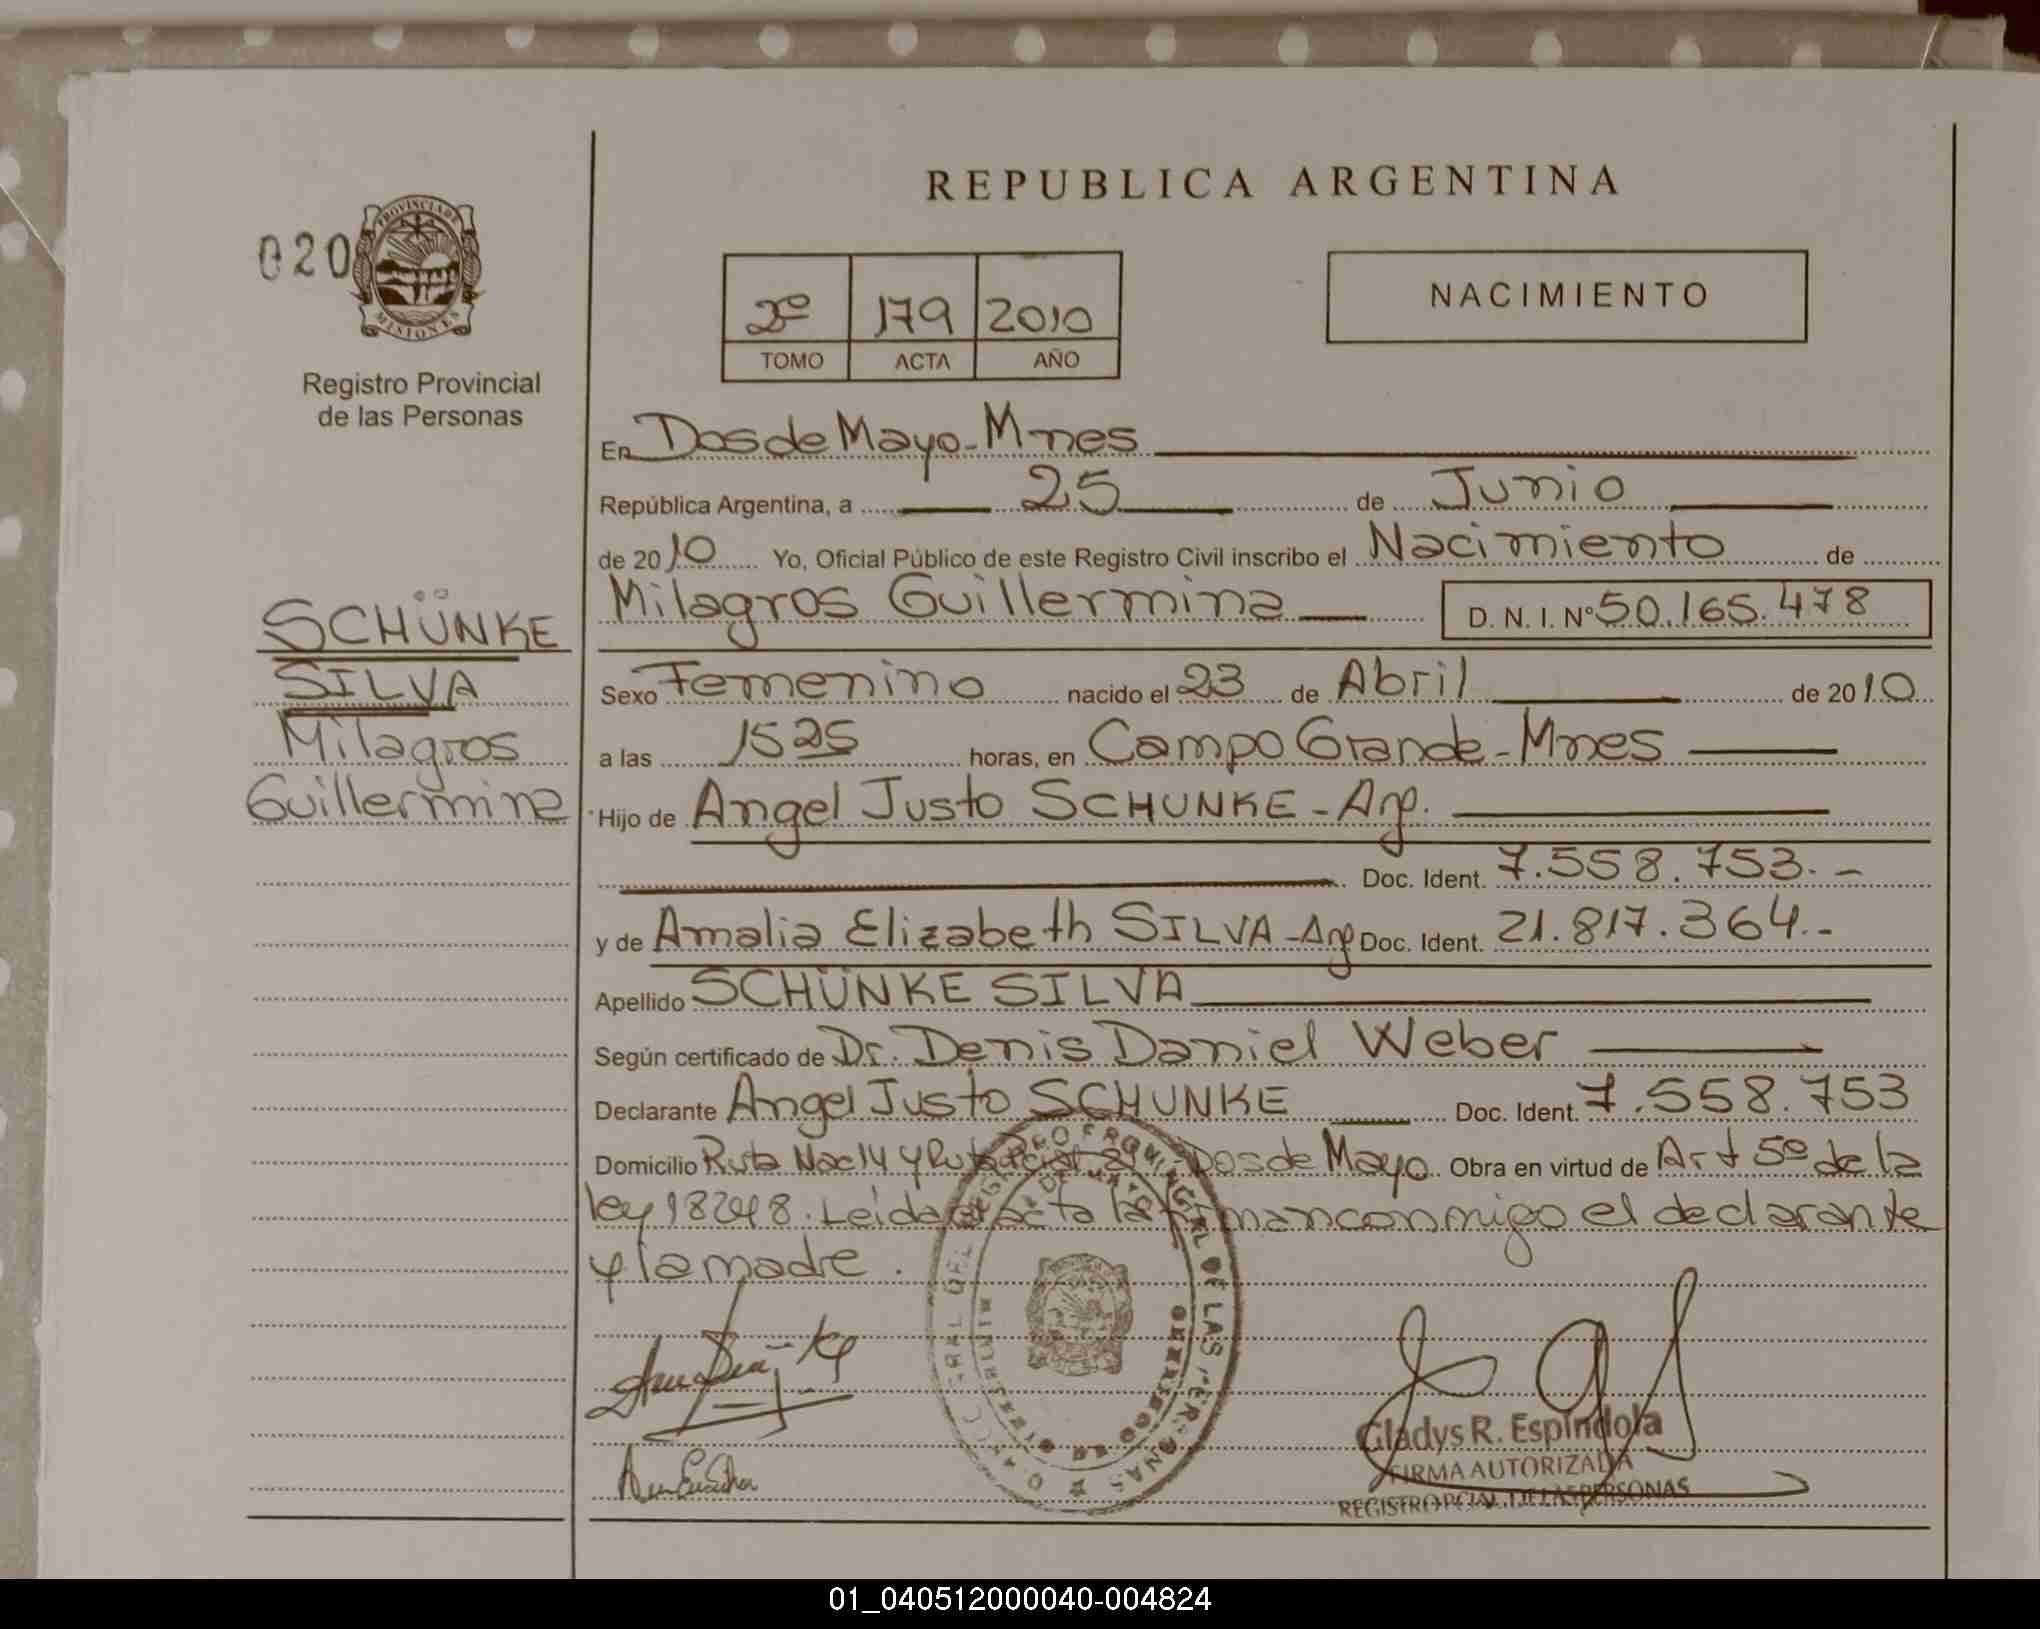 REPUBLICA ARGENTINA
020
PROVINCIA DE
MISIONES
Registro Provincial
de las Personas
2º 179 2010
TOMO ACTA AÑO
NACIMIENTO
SCHÜNKE
SILVA
Milagros
Guillermina
En Dos de Mayo - Mnes
República Argentina, a 25 de Junio
de 2010 Yo, Oficial Público de este Registro Civil inscribo el Nacimiento de
Milagros Guillermina D. N. I. Nº 50.165.478
Sexo Femenino nacido el 23 de Abril de 2010
a las 1525 horas, en Campo Grande - Mnes
Hijo de Angel Justo SCHUNKE - Arg.
Doc. Ident. 7.558.753.-
y de Amalia Elizabeth SILVA - Arg Doc. Ident. 21.817.364.-
Apellido SCHÜNKE SILVA
Según certificado de Dr. Denis Daniel Weber
Declarante Angel Justo SCHUNKE Doc. Ident. 7.558.753
Domicilio Ruta Nac 14 y Ruta Dos de Mayo Obra en virtud de Art 5º de la
ley 18248. Leida acta la firman conmigo el declarante
y la madre.
DE LAS PERSONAS
Gladys R. Espíndola
FIRMA AUTORIZADA
REGISTRO PCIAL. DE LAS PERSONAS
01_040512000040-004824